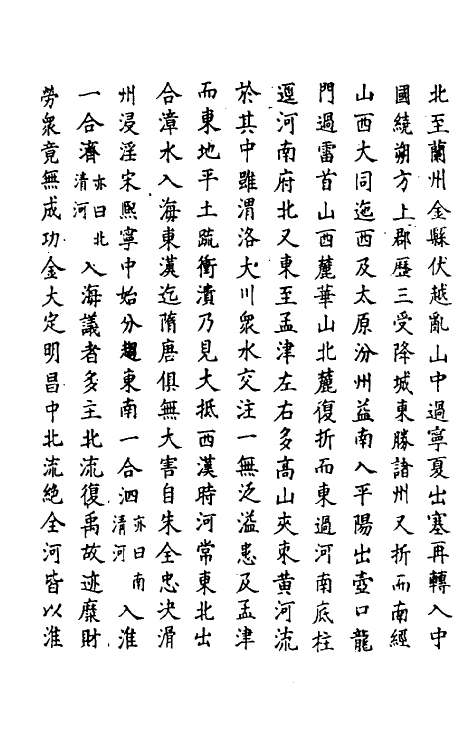 北至蘭州金縣伏越亂山中過寧夏出塞再轉入中
國繞朔方上郡歷三受降城東勝諸州又折而南經
山西大同迤西及太原汾州益南入平陽出壺口龍
門過雷首山西麓華山北麓復折而東過河南底柱
逕河南府北又東至孟津左右多高山夾束黃河流
於其中雖渭洛大川衆水交注一無泛溢患及孟津
而東地平土疏衝潰乃見大抵西漢時河常東北出
合漳水入海東漢迄隋唐俱無大害自朱全忠决滑
州浸淫宋熙寧中始分趨東南一合泗亦曰南清河入淮
一合濟亦曰北清河入海議者多主北流復禹故迹糜財
勞衆竟無成功金大定明昌中北流絶全河皆以淮